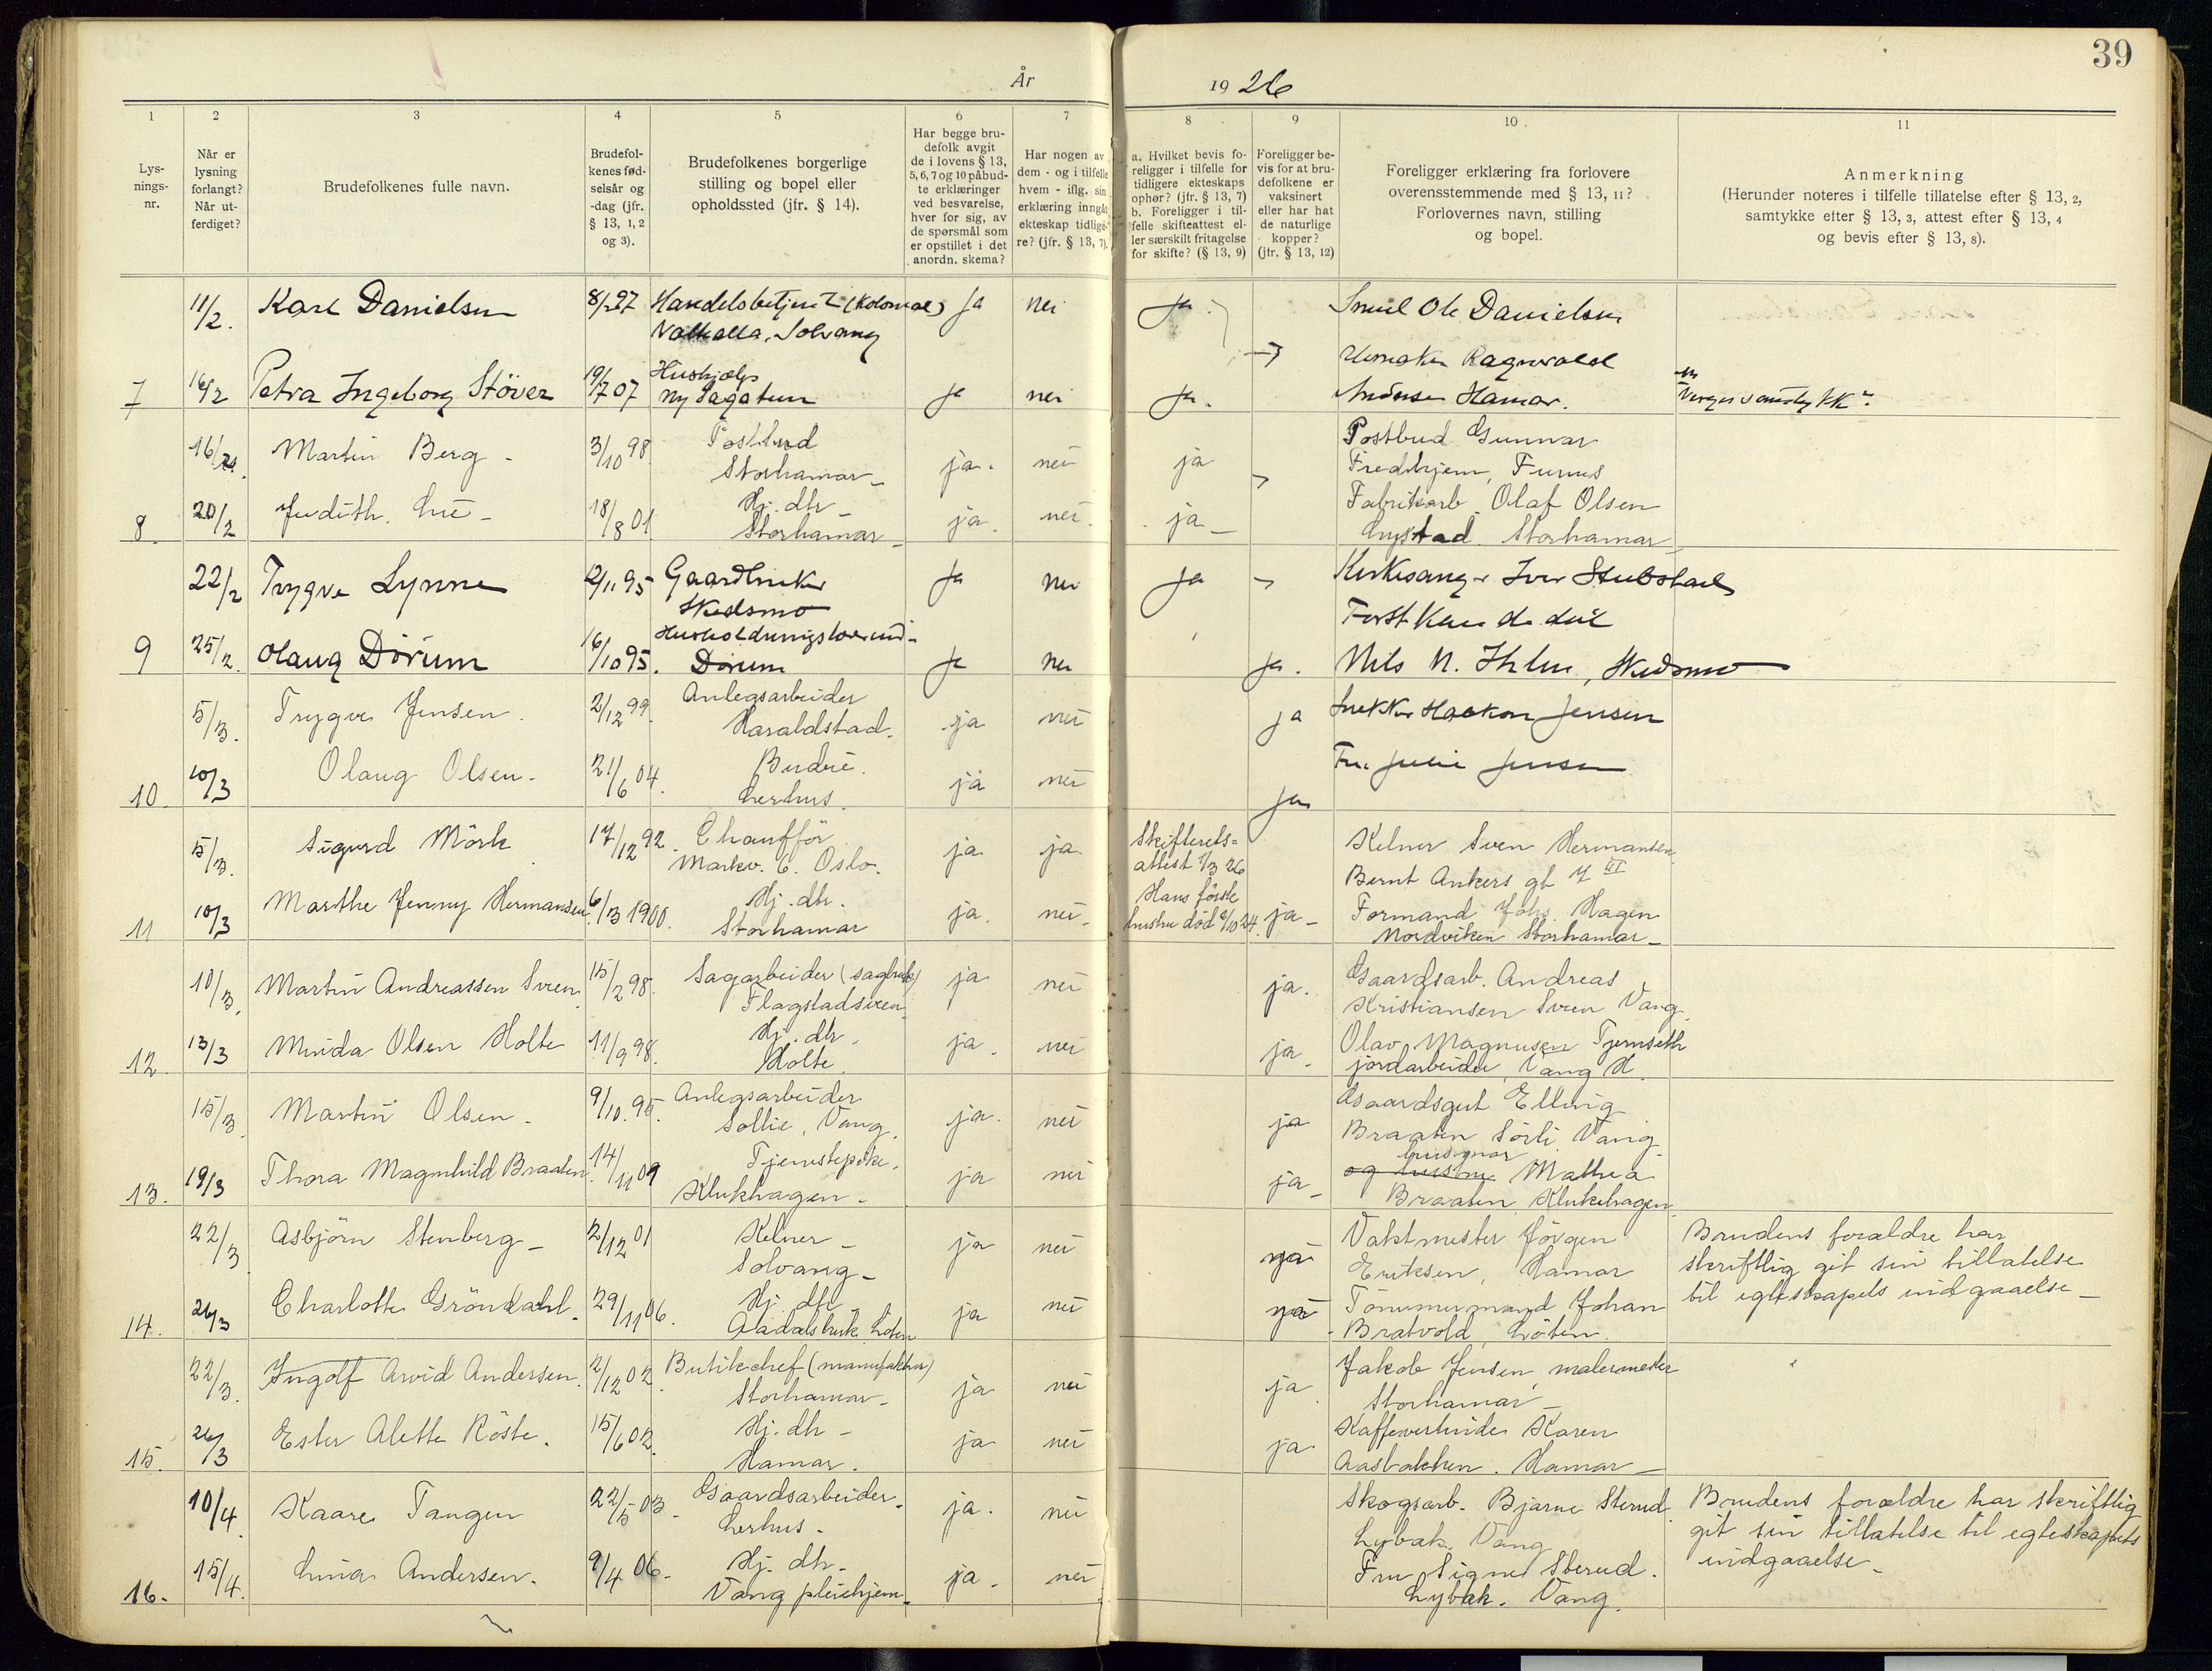 39
År 1926
1 2 3 4 5 6 7 8 9 10 11
Lys-
nings-
nr.
Når er
lysning
forlangt?
Når ut-
ferdiget?
Brudefolkenes fulle navn.
Brudefol-
kenes fød-
selsår og
-dag (jfr.
§ 13, 1, 2
og 3).
Brudefolkenes borgerlige
stilling og bopel eller
opholdssted (jfr. § 14).
Har begge bru-
defolk avgit
de i lovens § 13,
5, 6, 7 og 10 påbud-
te erklæringer
ved besvarelse,
hver for sig, av
de spørsmål som
er opstillet i det
anordn. skema?
Har nogen av
dem - og i tilfelle
hvem - iflg. sin
erklæring inngått
ekteskap tidlige-
re? (jfr. § 13, 7).
a. Hvilket bevis fo-
religger i tilfelle for
tidligere ekteskaps
ophør? (jfr. § 13, 7)
b. Foreligger i til-
felle skifteattest el-
ler særskilt fritagelse
for skifte? (§ 13, 9)
Foreligger be-
vis for at bru-
defolkene er
vaksinert
eller har hat
de naturlige
kopper?
(jfr. § 13, 12)
Foreligger erklæring fra forlovere
overensstemmende med § 13, 11?
Forlovernes navn, stilling
og bopel.
Anmerkning
(Herunder noteres i tilfelle tillatelse efter § 13, 2,
samtykke efter § 13, 3, attest efter § 13, 4
og bevis efter § 13, 8).
11/2. Karl Danielsen 8/2 97 Handelsbetjent (Kolonial) Ja nei Ja. Ole Danielsen
Valhalla, Solvang
Ragnvald
7 16/2 Petra Ingeborg Stöver 19/7 07 Hushjælp Ja nei Ja. Andersen Hamar.
Ny Sagatun
16/2. Martin Berg - 3/10 98 Postbud ja. nei ja Postbud Gunnar
Storhamar - Fredhjem, Furnes
8. 20/2 Judith Lie - 18/8 01 Hj. dtr ja. nei. ja - Fabrikarb. Olaf Olsen
Storhamar - Lystad. Storhamar
22/2 Trygve Lynne 12/11 95 Gaardbruker Ja Nei Ja Kirkesanger Iver Stubstad
Skedsmo Forstkandidat
9 25/2. Olaug Dörum 16/10 95. Husholdningslærerind- Ja Nei Ja. Nils N. Ihlen, Skedsmo
Dørum
5/3. Trygve Jensen. 2/12 99. Anlegsarbeider ja nei ja Snekker Haakon Jensen
Haraldstad.
10. 10/3 Olaug Olsen. 21/6 04. Budeie. ja nei Ja Fru Julie Jensen
Lerhus.
5/3. Sigurd Mörk 17/12 92. Chaufför ja ja. Skifterets=
attest 1/3 26 Kelner Sven Hermansen
Markv. 6. Oslo. Bernt Ankers gt 7 III
11 10/3 Marthe Jenny Hermansen 6/3 1900. Hj. dtr. ja. nei. Hans förste
hustru död 2/10 24. ja - Formand Johs. Hagen
Storhamar Nordviken Storhamar -
10/3. Martin Andreassen Sveen 15/2 98. Sagarbeider (sagbruk) ja nei ja. Gaardsarb. Andreas
Flagstadsveen Kristiansen Sveen Vang.
12 13/3 Minda Olsen Holte 11/9 98. Hj. dtr. ja. nei ja. Olav Magnusen Tjernseth
Holte. jordarbeider, Vang H.
15/3 Martin Olsen. 9/10. 95. Anlegsarbeider ja. nei ja Gaardsgut Elling
Sollie, Vang. Braaten Sörli Vang
13. 19/3 Thora Magnhild Braaten. 14/11 09 Tjenestepike. ja nei ja - og hustru husmor Mathea
Klukhagen. Braaten, Klukehagen
22/3 Asbjörn Stenberg - 2/12 01 Kelner - ja nei ja Vaktmester Jörgen
Solvang - Eriksen, Hamar
Brudens forældre har
skriftlig git sin tillatelse
til egteskapets indgaaelse -
14. 26/3 Charlotte Gröndahl. 29/11 06. Hj. dtr ja nei ja Tömmermand Johan
Aadalsbruk Löten Bratvold, Löten.
22/3. Ingolf Arvid Andersen. 2/12 02. Butikchef (manufaktur) ja nei ja Jakob Jensen, malermester
Storhamar - Storhamar -
15. 26/3 Ester Alette Röste. 15/6 02. Hj. dtr - ja nei ja Kaffevertinde Karen
Hamar. Aasbakken. Hamar -
10/4. Kaare Tangen 22/5 03. Gaardsarbeider. ja. nei Skogsarb. Bjarne Sterud.
Lerhus. Lybak. Vang
Brudens forældre har skriftlig
git sin tillatelse til egteskapets
indgaaelse -
16. 15/4. Lina Andersen. 9/4 06. Hj. dtr. ja. nei Fru Signe Sterud.
Vang pleiehjem. Lybak. Vang.